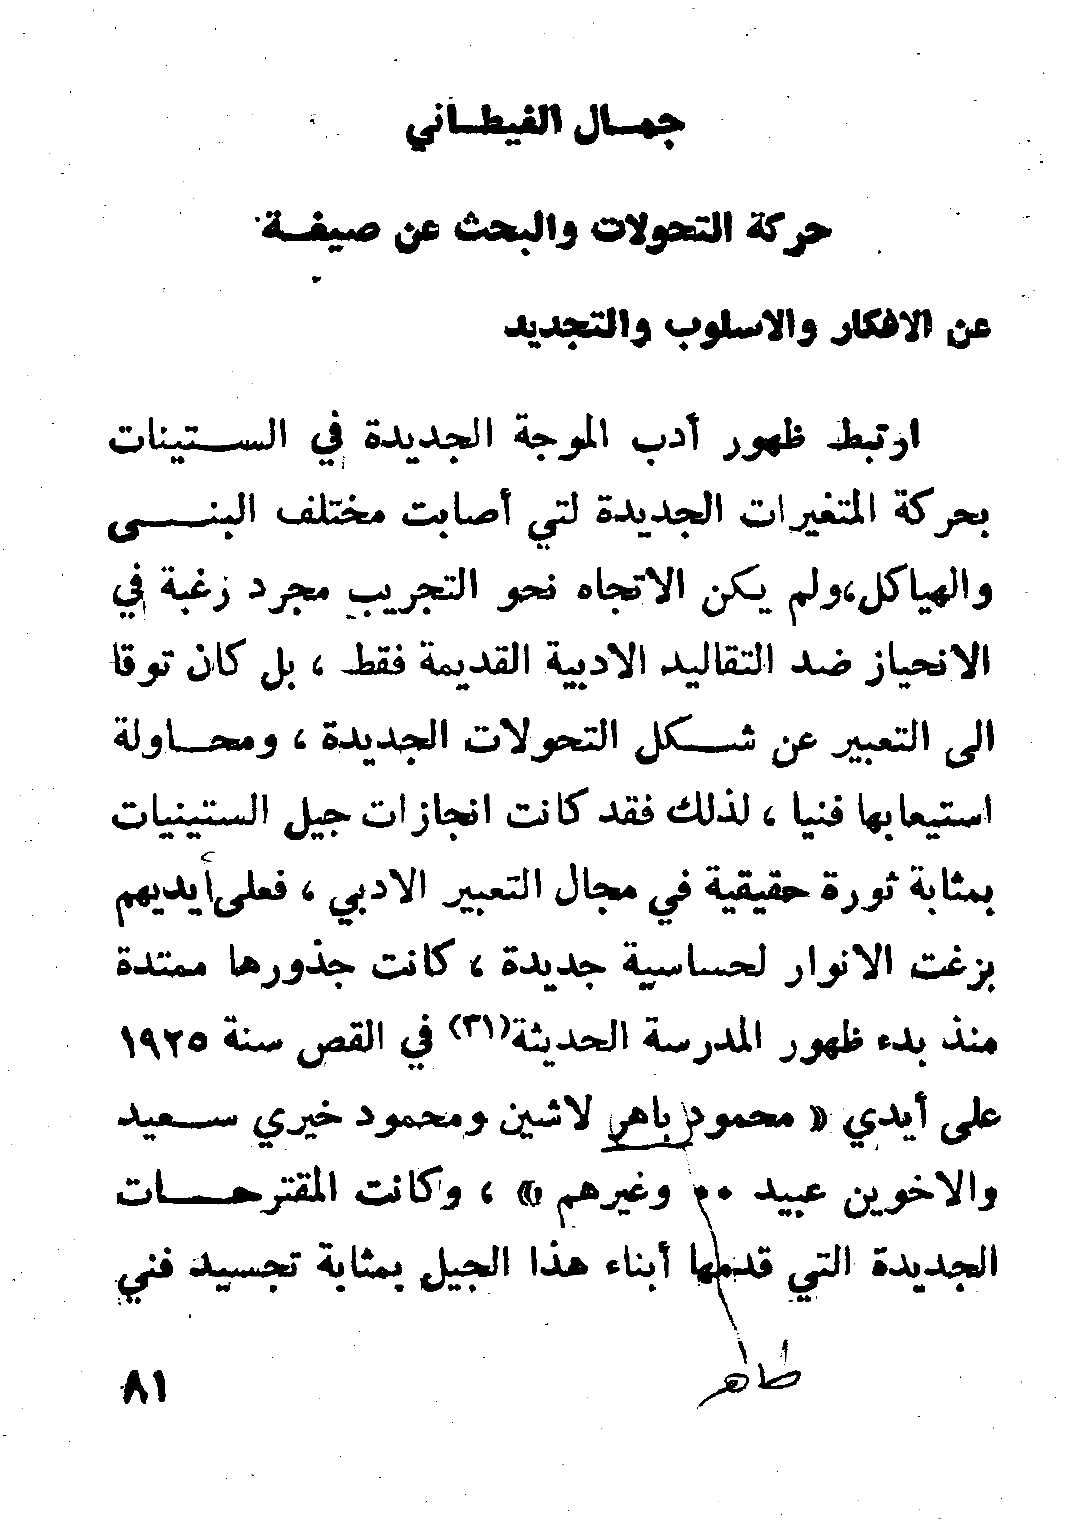 جمال الغيطاني
حركة التحولات والبحث عن صيغة
عن الافكار والاسلوب والتجديد
ارتبط ظهور أدب الموجة الجديدة في الستينات
بحركة المتغيرات الجديدة لتي أصابت مختلف البنى
والهياكل، ولم يكن الاتجاه نحو التجريب مجرد رغبة في
الانحياز ضد التقاليد الادبية القديمة فقط ، بل كان توقا
الى التعبير عن شكل التحولات الجديدة ، ومحاولة
استيعابها فنيا ، لذلك فقد كانت انجازات جيل الستينيات
بمثابة ثورة حقيقية في مجال التعبير الادبي ، فعلى أيديهم
بزغت الانوار لحساسية جديدة ، كانت جذورها ممتدة
منذ بدء ظهور المدرسة الحديثة(٣١) في القص سنة ١٩٢٥
على أيدي « محمود باهر لاشين ومحمود خيري سعيد
والاخوين عبيد ٠٠ وغيرهم » ، وكانت المقترحات
الجديدة التي قدمها أبناء هذا الجيل بمثابة تجسيد فني
طاهر
٨١